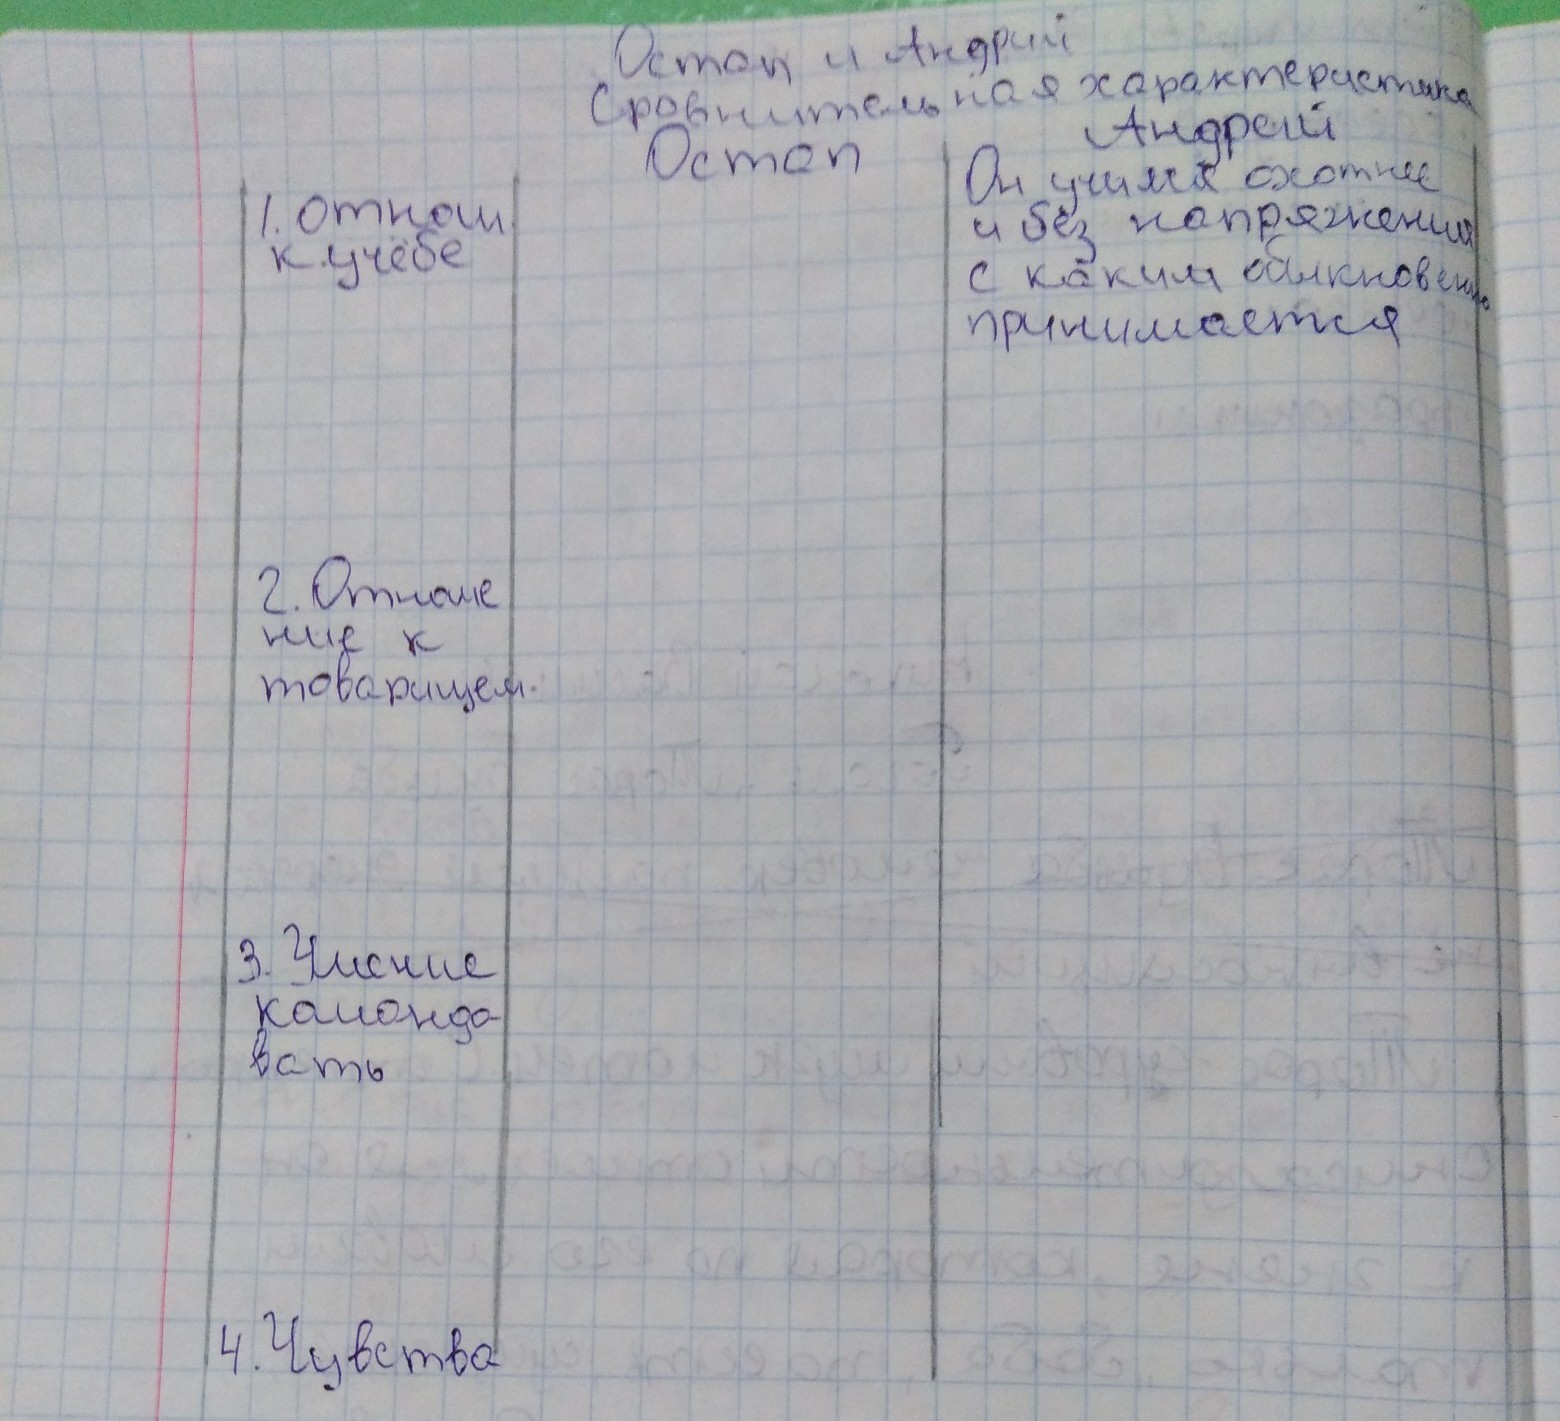 Остап и Андрий
Сравнительная характеристика
Остап
Андрей
1. Отнош.
к учёбе
Он учился охотнее
и без напряжения
с каким обыкновенно
принимается
2. Отноше
ние к
товарищем.
3. Умение
командо-
вать
4. Чувства